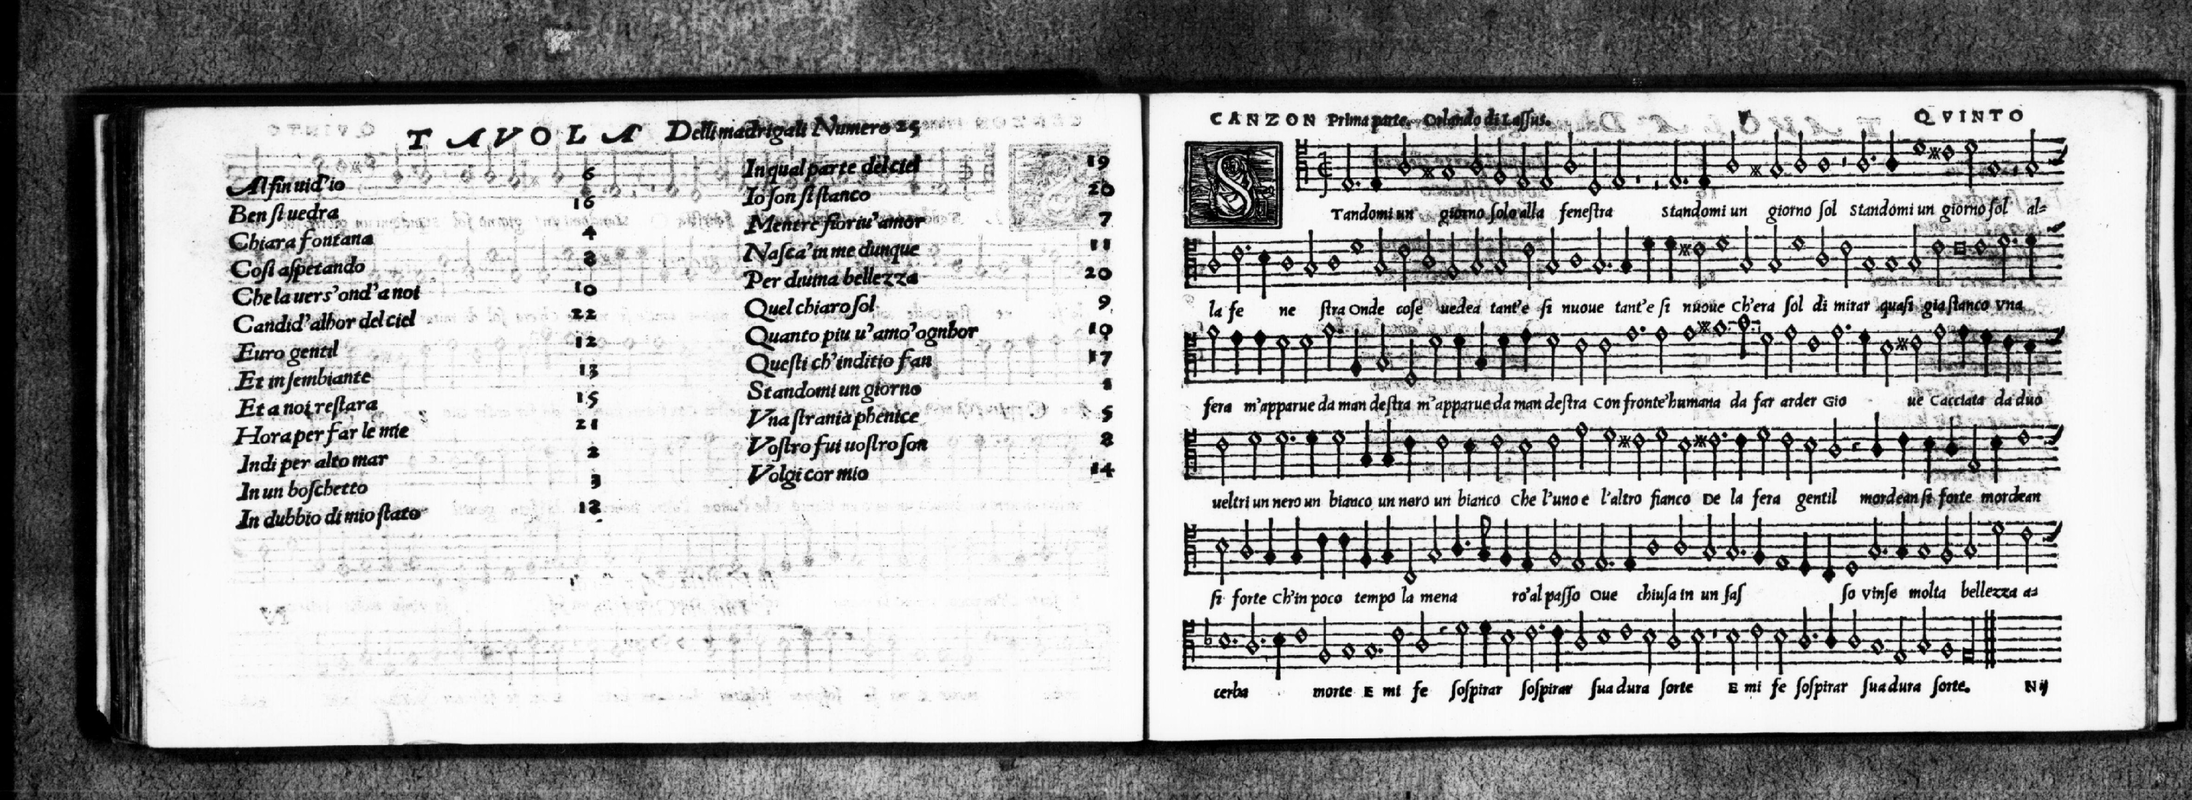 TAVOLA Delli madrigali Numero 25
Al fin uid'io 6
Ben si uedra 16
Chiara fontana 4
Cosi aspetando 8
Che la uers'ond'a noi 10
Candid'alhor del ciel 22
Euro gentil 12
Et in sembiante 13
Et a noi restara 15
Hora per far le mie 21
Indi per alto mar 2
In un boschetto 3
In dubbio di mio stato 18
In qual parte del ciel 19
Io son si stanco 20
Mentre fioriu'amor 7
Nasca'in me dunque 11
Per diuina bellezza 20
Quel chiaro sol 9
Quanto piu u'amo'ognhor 10
Questi ch'inditio fan 17
Standomi un giorno 1
Vna strania phenice 5
Vostro fui uostro son 8
Volgi cor mio 14
CANZON Prima parte. Orlando di Lassus. QVINTO
S Tandomi un giorno solo alla fenestra Standomi un giorno sol Standomi un giorno sol al=
la fe ne stra Onde cose uedea tant'e si nuoue tant'e si nuoue Ch'era sol di mirar quasi gia stanco Vna
fera m'apparue da man destra m'apparue da man destra Con fronte'humana da far arder Gio ue Cacciata da duo
ueltri un nero un bianco un nero un bianco Che l'uno e l'altro fianco De la fera gentil mordean si forte mordean
si forte Ch'in poco tempo la mena ro'al passo Oue chiusa in un sas so Vinse molta bellezza a=
cerba morte E mi fe sospirar sospirar sua dura sorte E mi fe sospirar sua dura sorte. N ij